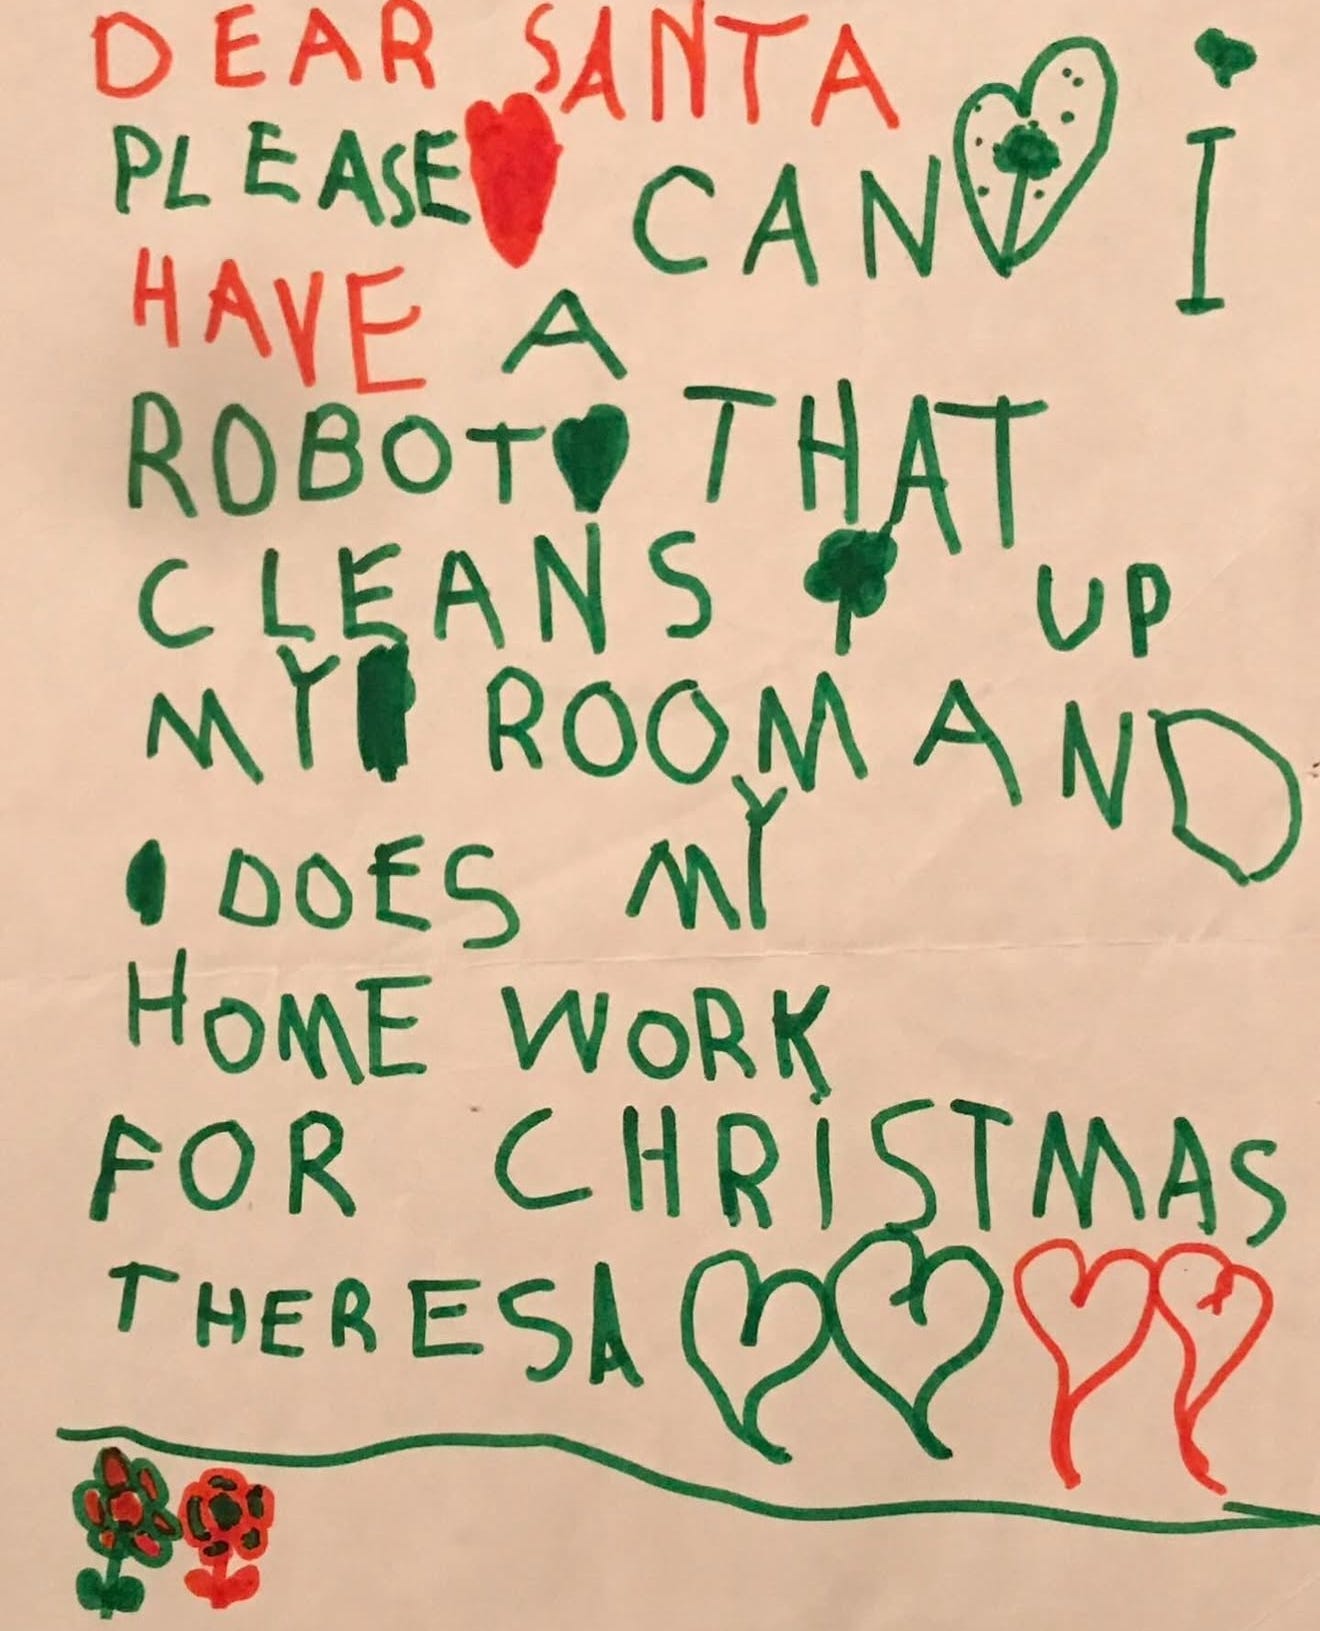 DEAR SANTA
PLEASE CAN I
HAVE A
ROBOT THAT
CLEANS UP
MY ROOM AND
DOES MY
HOME WORK
FOR CHRiSTMAS
THERESA